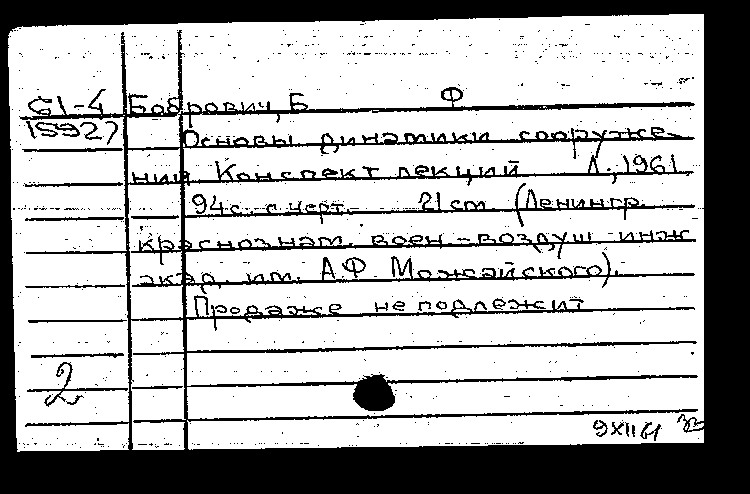 61-4 Бобрович, Б Ф
15927
Основы динамики сооруже-
ний Конспект лекций Л., 1961
94с. с черт. 21 cm (Ленингр.
краснознам. воен.-воздуш инж
акад. им. А.Ф. Можайского).
Продаже не подлежит
2
9 XII 61